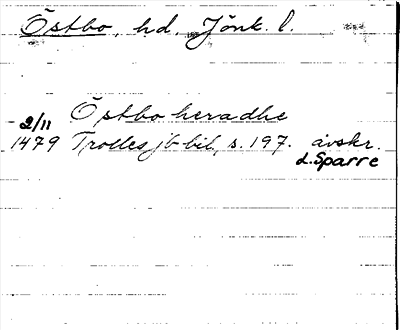 Östbo, hd, Jönk. l.
Östbo heradhe
2/11
1479 Trolles jb-bil, s. 197. avskr.
d. Sparre